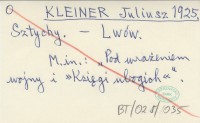 O KLEINER Juliusz 1925.
Sztychy. – Lwów.
M.in.: „Pod wrażeniem
wojny i »Księgi ubogich«".
BT/028/035